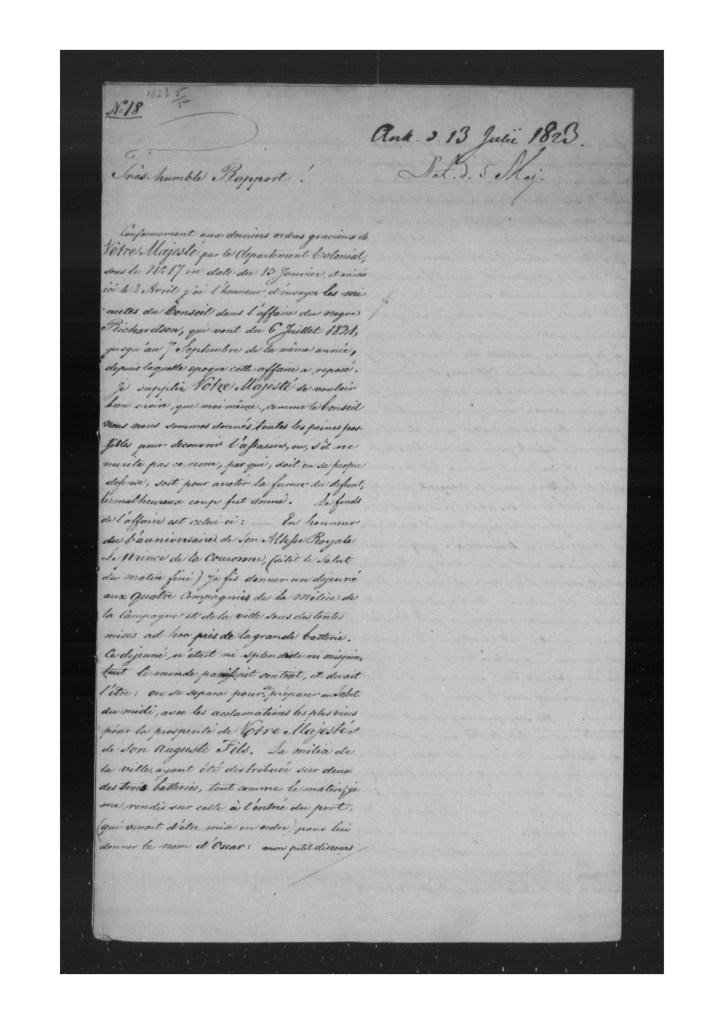 No 18
1823 5/5
Ank. d. 13 Julii 1823.
Dat. d. 5 Maj.
Très-humble Rapport!
Conformement aux derniers ordres gracieux de
Votre Majesté par le departement Colonial,
sous le No. 17 en date du 13 Janvier, et arrivé
ici le 2 Avril j'ai l'honneur d'envoyer les mi-
nutes du Conseil dans l'affaire du negre
Richardson, qui vont du 6 Juillet 1821,
jusqu'au 7 Septembre de la même année,
depuis laquelle epoque cette affaire a reposé.
Je supplie Votre Majesté de vouloir
bien croire, que moi même, comme le Conseil
nous nous sommes donnés toutes les peines pos-
sibles pour decouvrir l'assassin, ou, s'il ne
merite pas ce nom, par qui, soit en sa propre
defense, soit pour arreter la fureur du defunt,
le malheureux coup fut donné. Le fonds
de l'affaire est celui-ci: — En honneur
de l'anniversaire de Son Altesse Royale
Le Prince de la Couronne, (aîté le Salut
du matin fini) je fis donner un dejeuné
aux quatre Compagnies de la Milice de
la Campagne et de la ville sous des tentes
mises ad hoc près de la grande batterie.
Ce dejeuné, n'était ni splendide ni mesquin,
tout le monde paraissait content, et devait
l'être: on se separa pour se préparer au Salut
du midi, avec les acclamations les plus vives
pour la prosperité de Votre Majesté et
de Son Auguste Fils. La milice de
la ville, ayant été distribuée sur deux
des trois batteries, tout comme le matin, je
me rendis sur celle à l'entrée du port,
(qui venait d'être mise en ordre) pour lui
donner le nom d'Oscar: mon petit discours